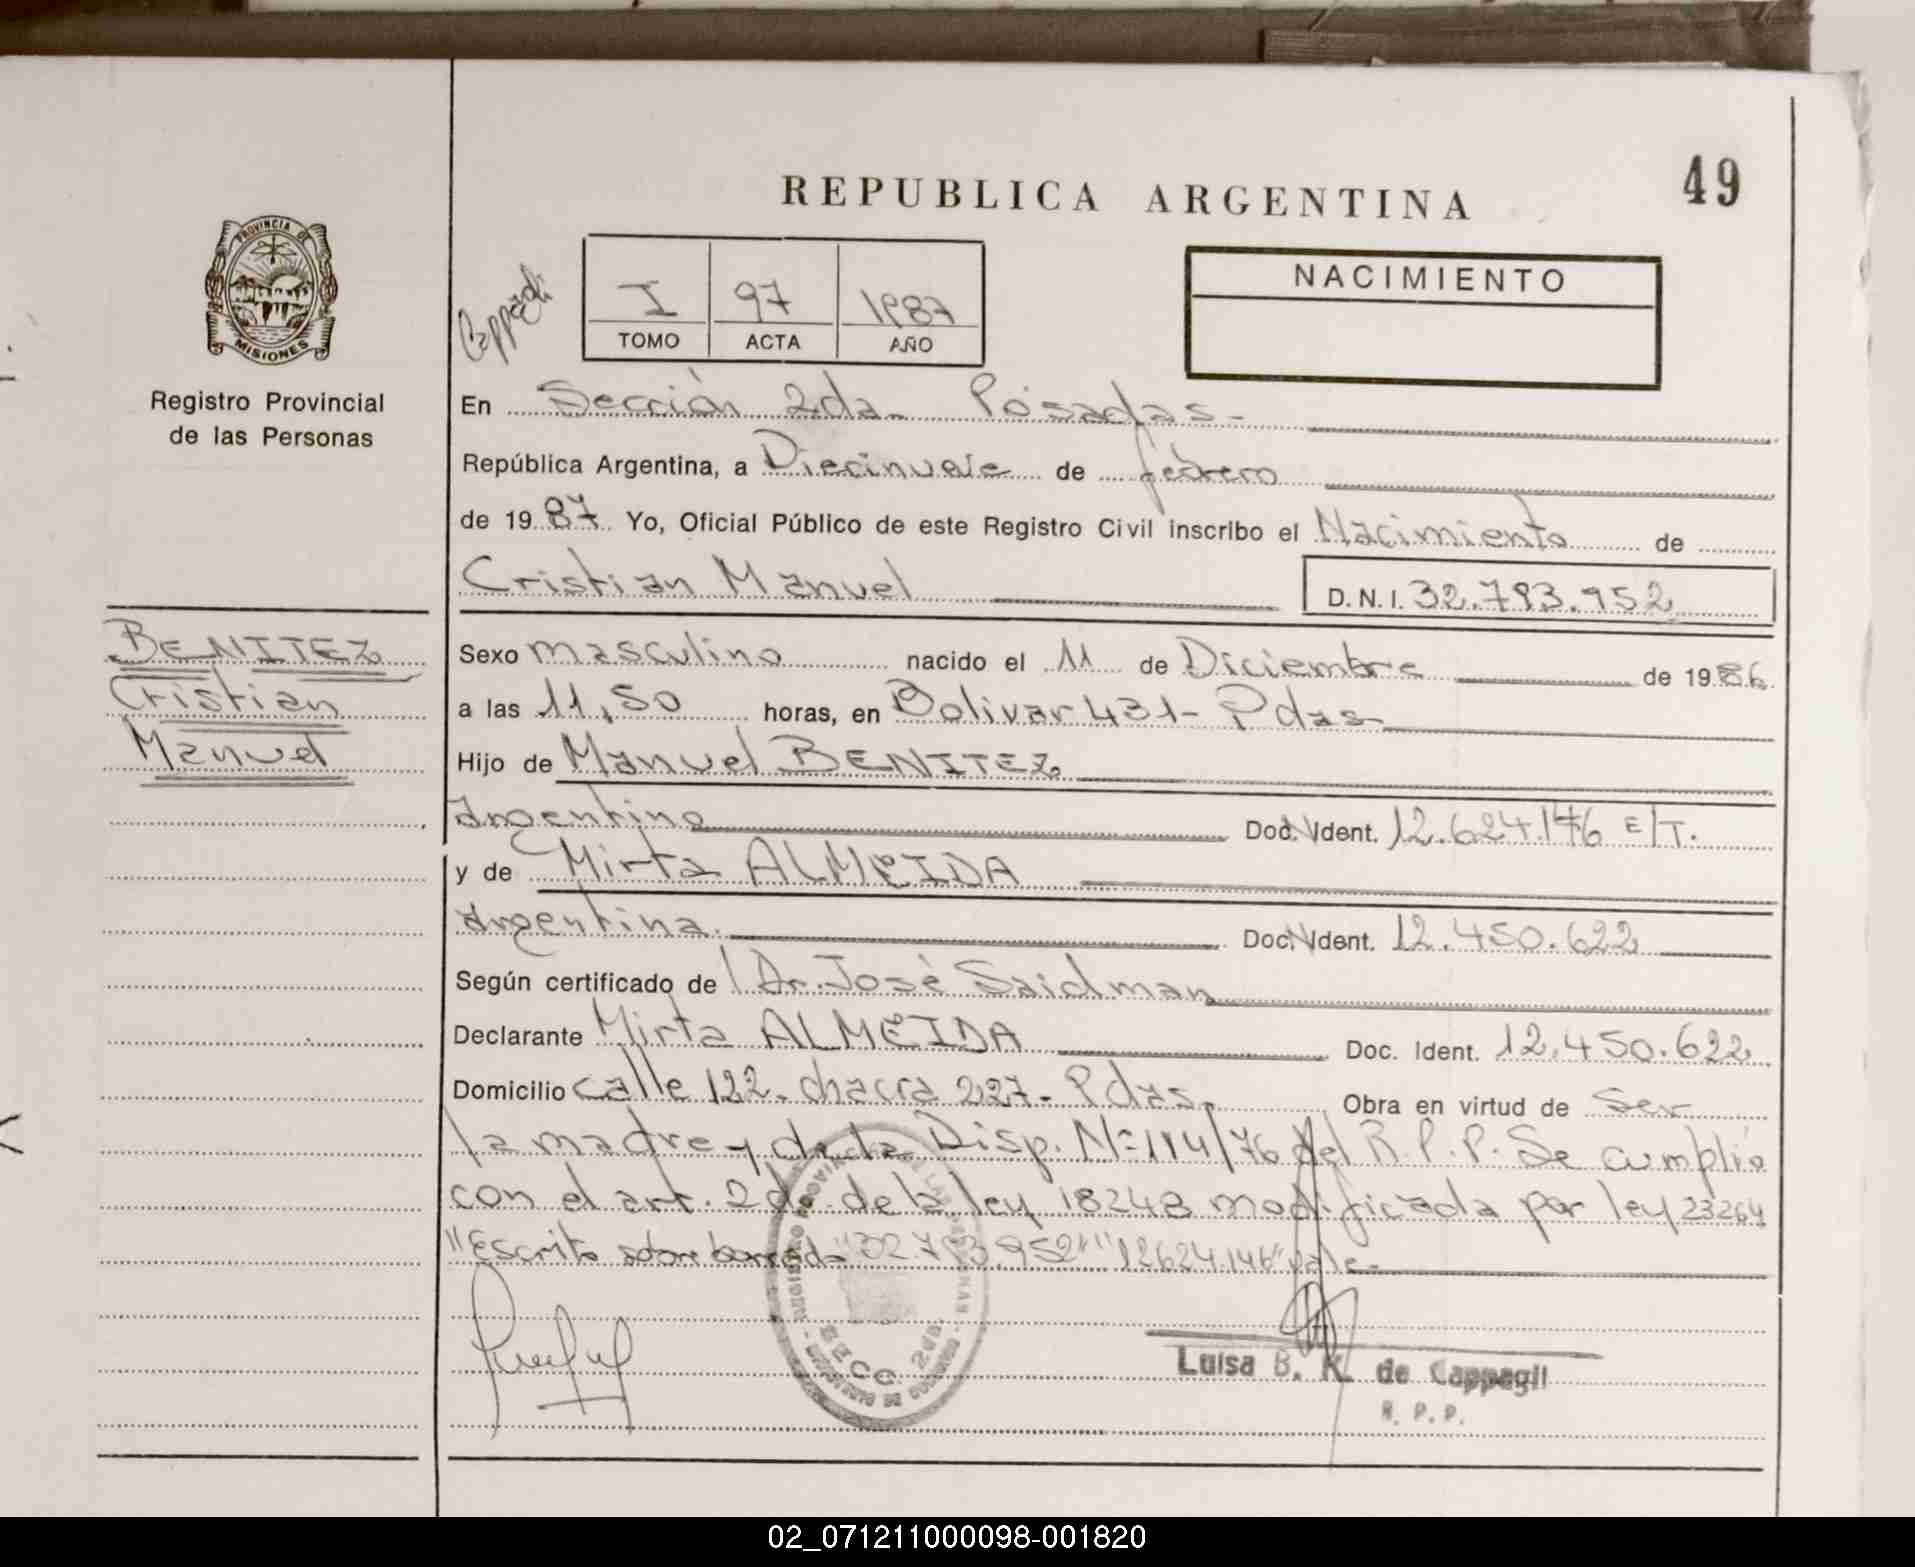 49
REPUBLICA ARGENTINA
PROVINCIA DE
MISIONES
Registro Provincial
de las Personas
I 97 1987
TOMO ACTA AÑO
NACIMIENTO
En Sección 2da. Posadas-
República Argentina, a Diecinueve de febrero
de 1987 Yo, Oficial Público de este Registro Civil inscribo el Nacimiento de
Cristian Manuel D.N.I. 32.793.952
BENITEZ
Cristian
Manuel
Sexo masculino nacido el 11 de Diciembre de 1986
a las 11,50 horas, en Bolivar 431- Pdas-
Hijo de Manuel BENITEZ
argentino Doc. Ident. 12.624.146 E/T.
y de Mirta ALMEIDA
argentina. Doc. Ident. 12.450.622
Según certificado de Dr. José Saidman
Declarante Mirta ALMEIDA Doc. Ident. 12.450.622
Domicilio calle 122. chacra 227- Pdas. Obra en virtud de Ser
la madre y de la Disp. Nº 114/76 del R.P.P. Se cumplió
con el art. 2do. de la ley 18248 modificada por ley 23264
"Escrito sobre borrado "32793.952" "12624146" vale-
SECC. 2da.
Luisa B. K. de Cappagli
R. P. P.
02_071211000098-001820